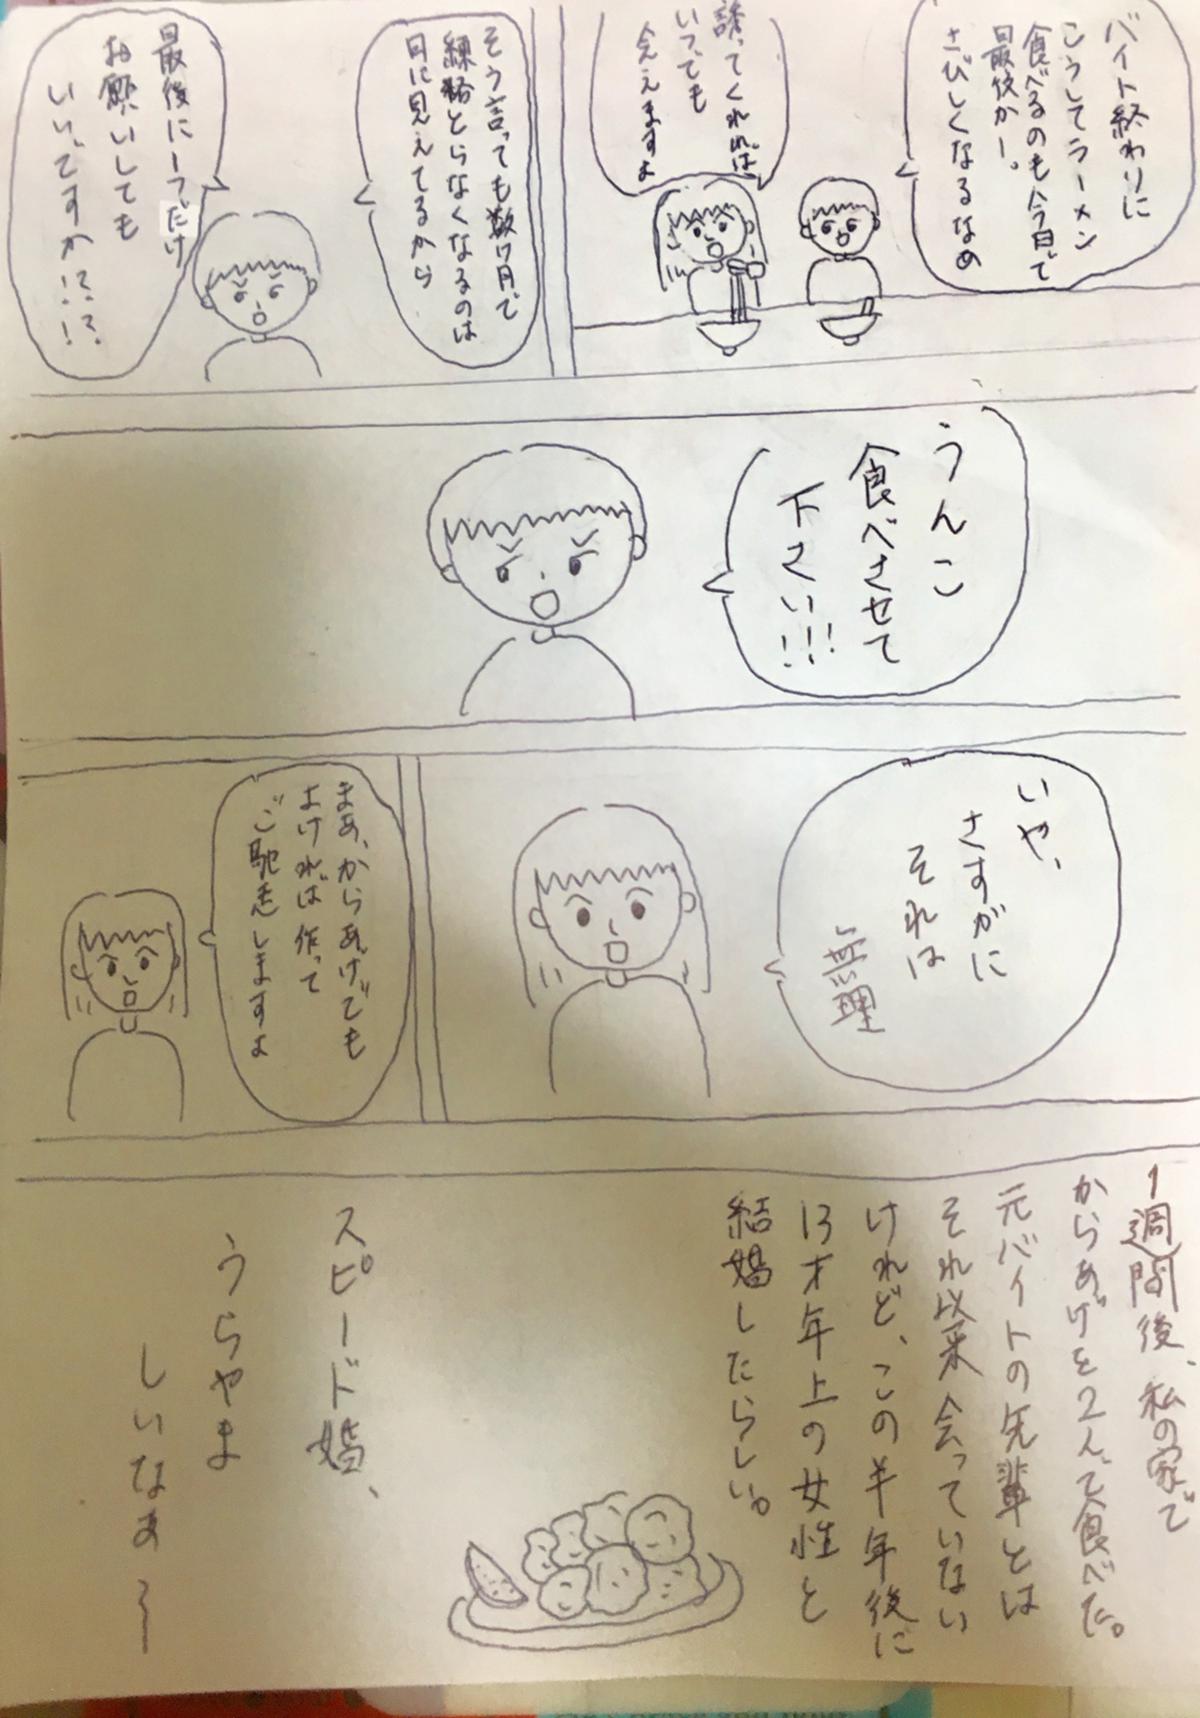 バイト終わりに
こうしてラーメン
食べるのも今日で
最後かー。
さびしくなるなぁ
誘ってくれれば
いつでも
会えますよ
そう言っても数ヶ月で
連絡とらなくなるのは
目に見えてるから
最後に1つだけ
お願いしても
いいですか!?!?
うんこ
食べさせて
下さい!!!
いや、
さすがに
それは
無理
まあ、からあげでも
よければ作って
ご馳走しますよ
1週間後、私の家で
からあげを2人で食べた。
元バイトの先輩とは
それ以来会っていない
けれど、この半年後に
13才年上の女性と
結婚したらしい。
スピード婚、
うらやま
しいなぁ〜